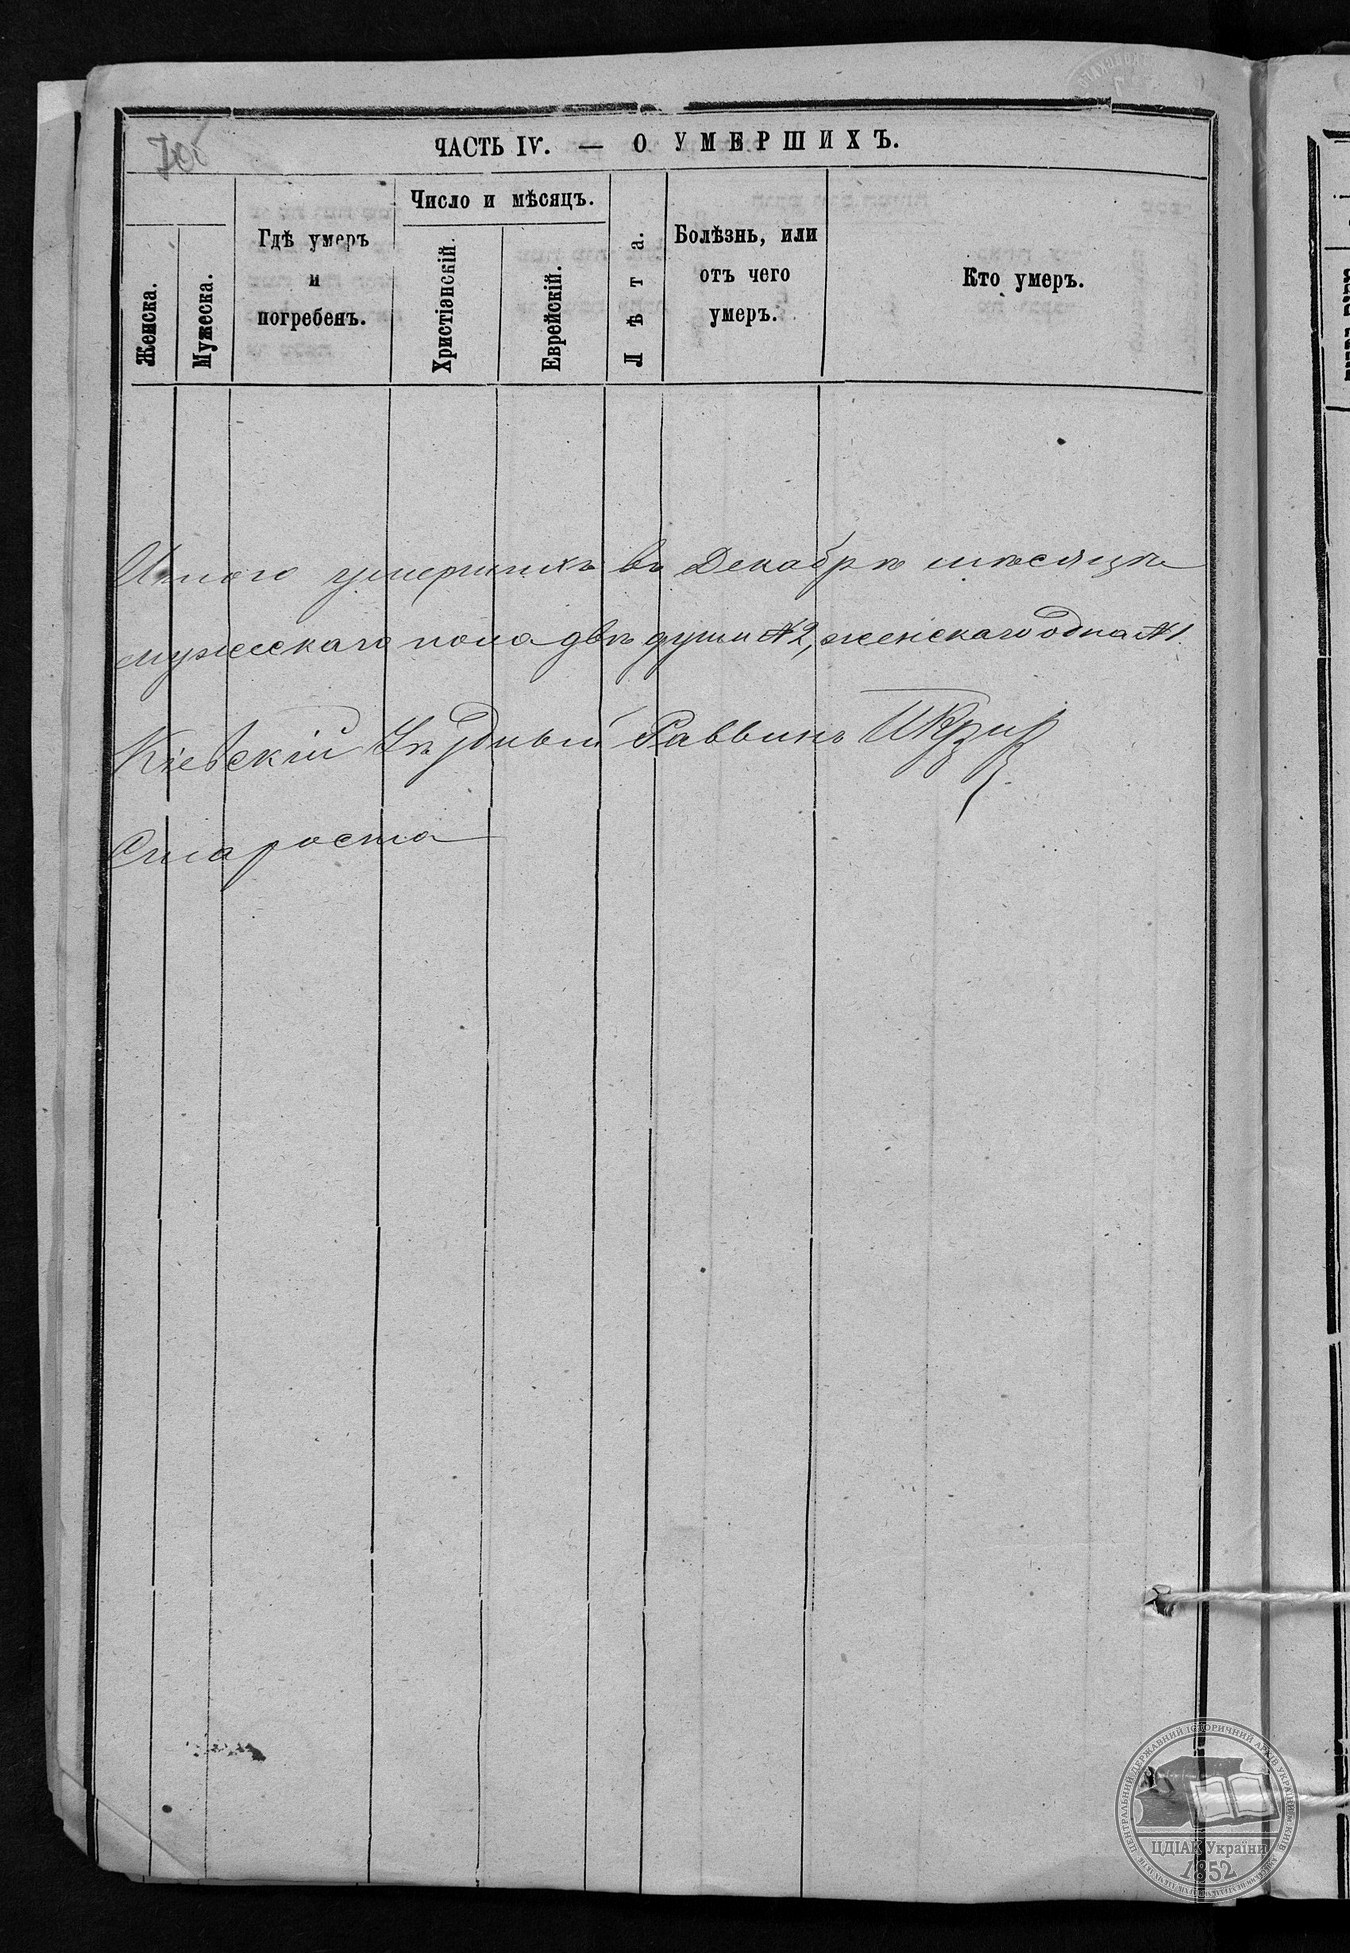 ЧАСТЬ IV. — О УМЕРШИХЪ.
Женска.
Мужеска.
Гдѣ умеръ
и
погребенъ.
Число и мѣсяцъ.
Христіанскій.
Еврейскій.
Лѣта.
Болѣзнь, или
отъ чего
умеръ.
Кто умеръ.
Итого умершихъ въ Декабрѣ мѣсяцѣ
мужескаго пола двѣ души №2, женскаго одна №1
Кіевскій Уѣздный Раввинъ
Староста
ЦЕНТРАЛЬНИЙ ДЕРЖАВНИЙ ІСТОРИЧНИЙ АРХІВ УКРАЇНИ М. КИЇВ
ЦДІАК України
1852